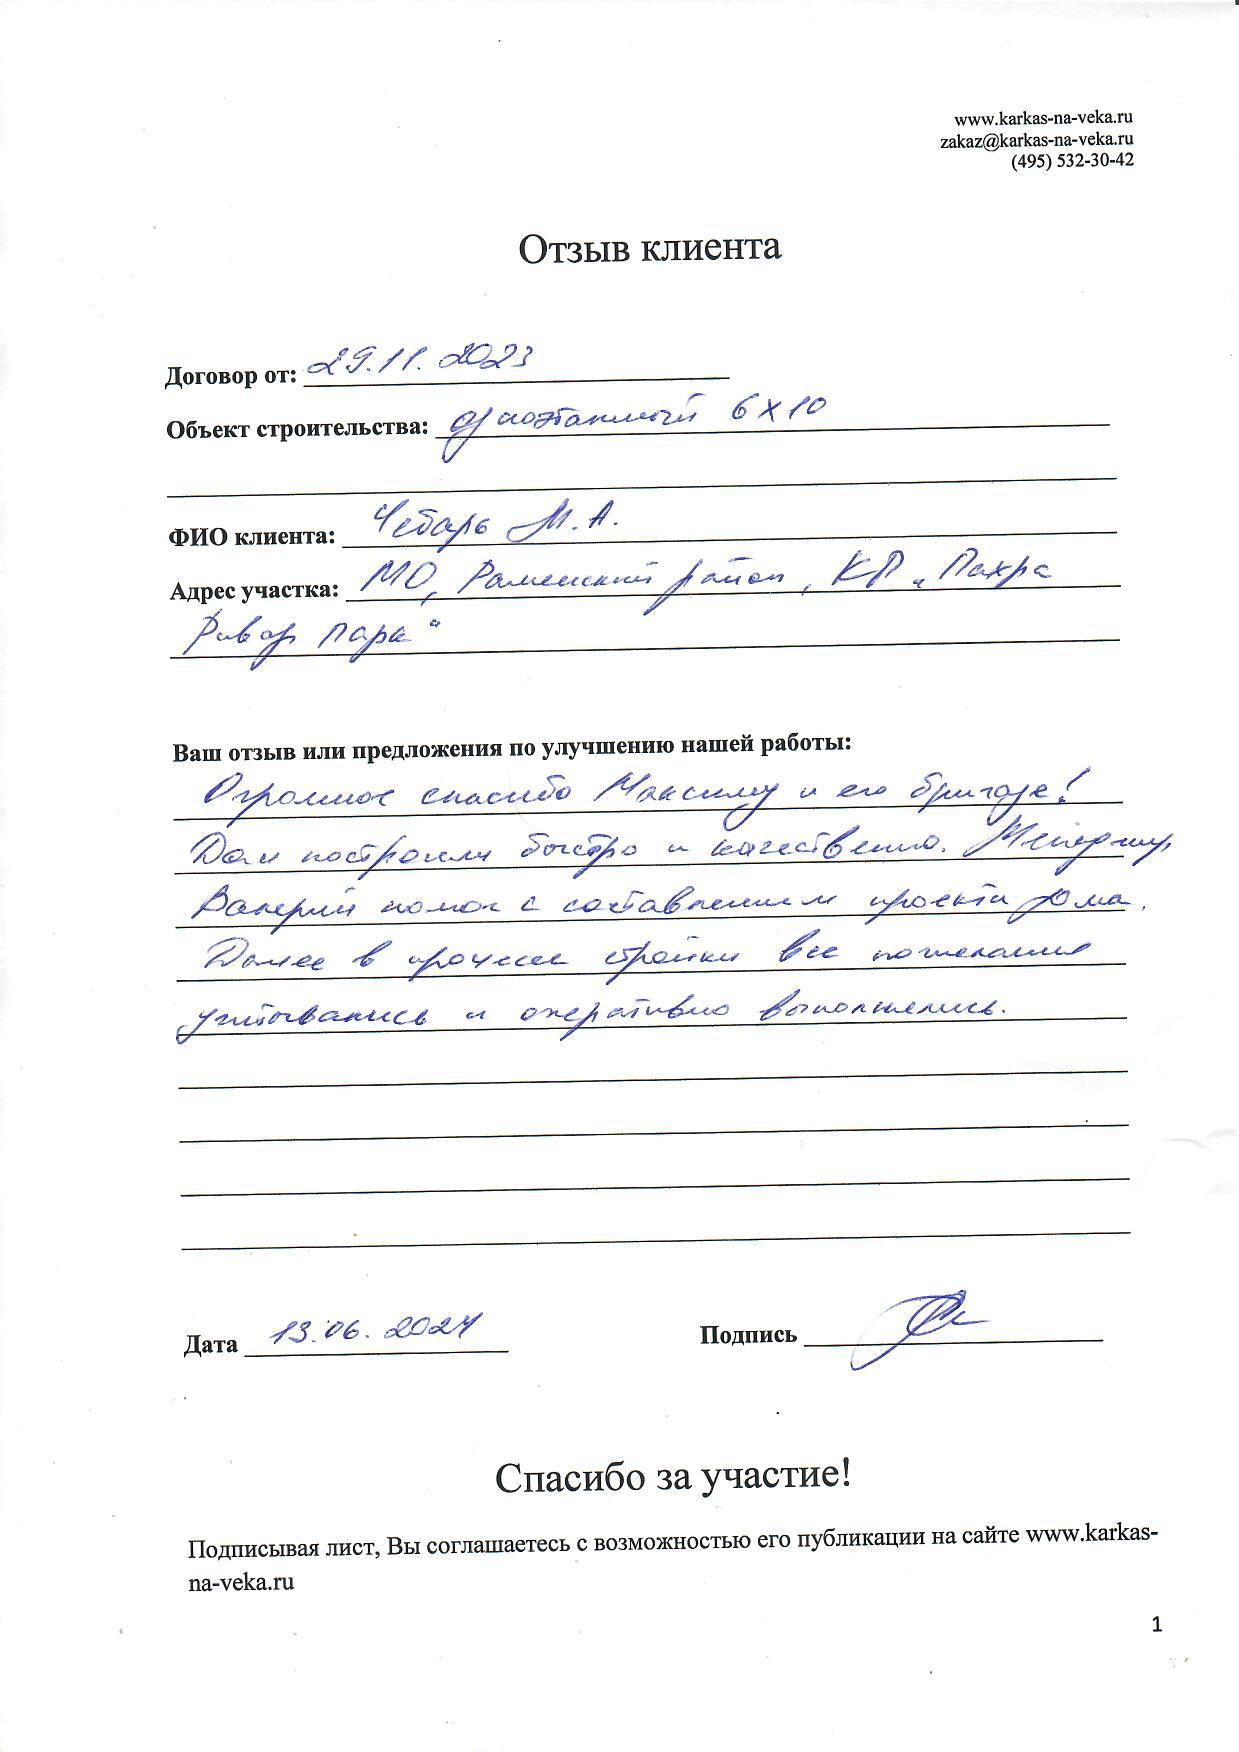 www.karkas-na-veka.ru
zakaz@karkas-na-veka.ru
(495) 532-30-42
Отзыв клиента
Договор от: 29.11.2023
Объект строительства: одноэтажный 6х10
ФИО клиента: Чебарь М.А.
Адрес участка: МО, Раменский район, КП „Пахра
Ривер парк“
Ваш отзыв или предложения по улучшению нашей работы:
Огромное спасибо Максиму и его бригаде!
Дом построили быстро и качественно. Менеджер
Валерий помог с составлением проекта дома.
Далее в процессе стройки все пожелания
учитывались и оперативно выполнялись.
Дата 13.06.2024 Подпись
Спасибо за участие!
Подписывая лист, Вы соглашаетесь с возможностью его публикации на сайте www.karkas-
na-veka.ru
1